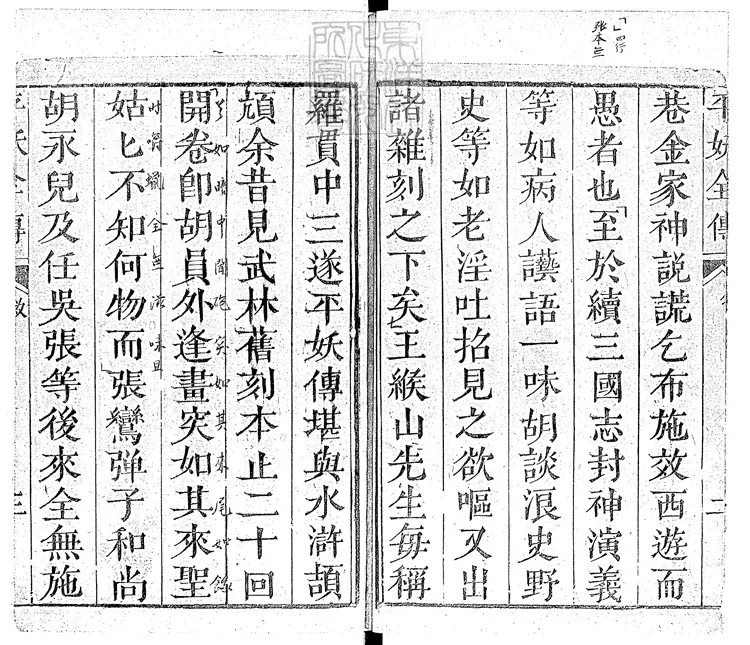 平妖全傳
二
巷金家神說謊乞布施效西遊而
愚者也至於續三國志封神演義
等如病人譫語一味胡談浪史野
史等如老淫吐招見之欲嘔又出
諸雜刻之下矣王緱山先生每稱
羅貫中三遂平妖傳堪與水滸頡
頏余昔見武林舊刻本止二十回
開卷卽胡員外逢畫突如其來聖
姑匕不知何物而張鸞彈子和尚
胡永兒及任吳張等後來全無施
三